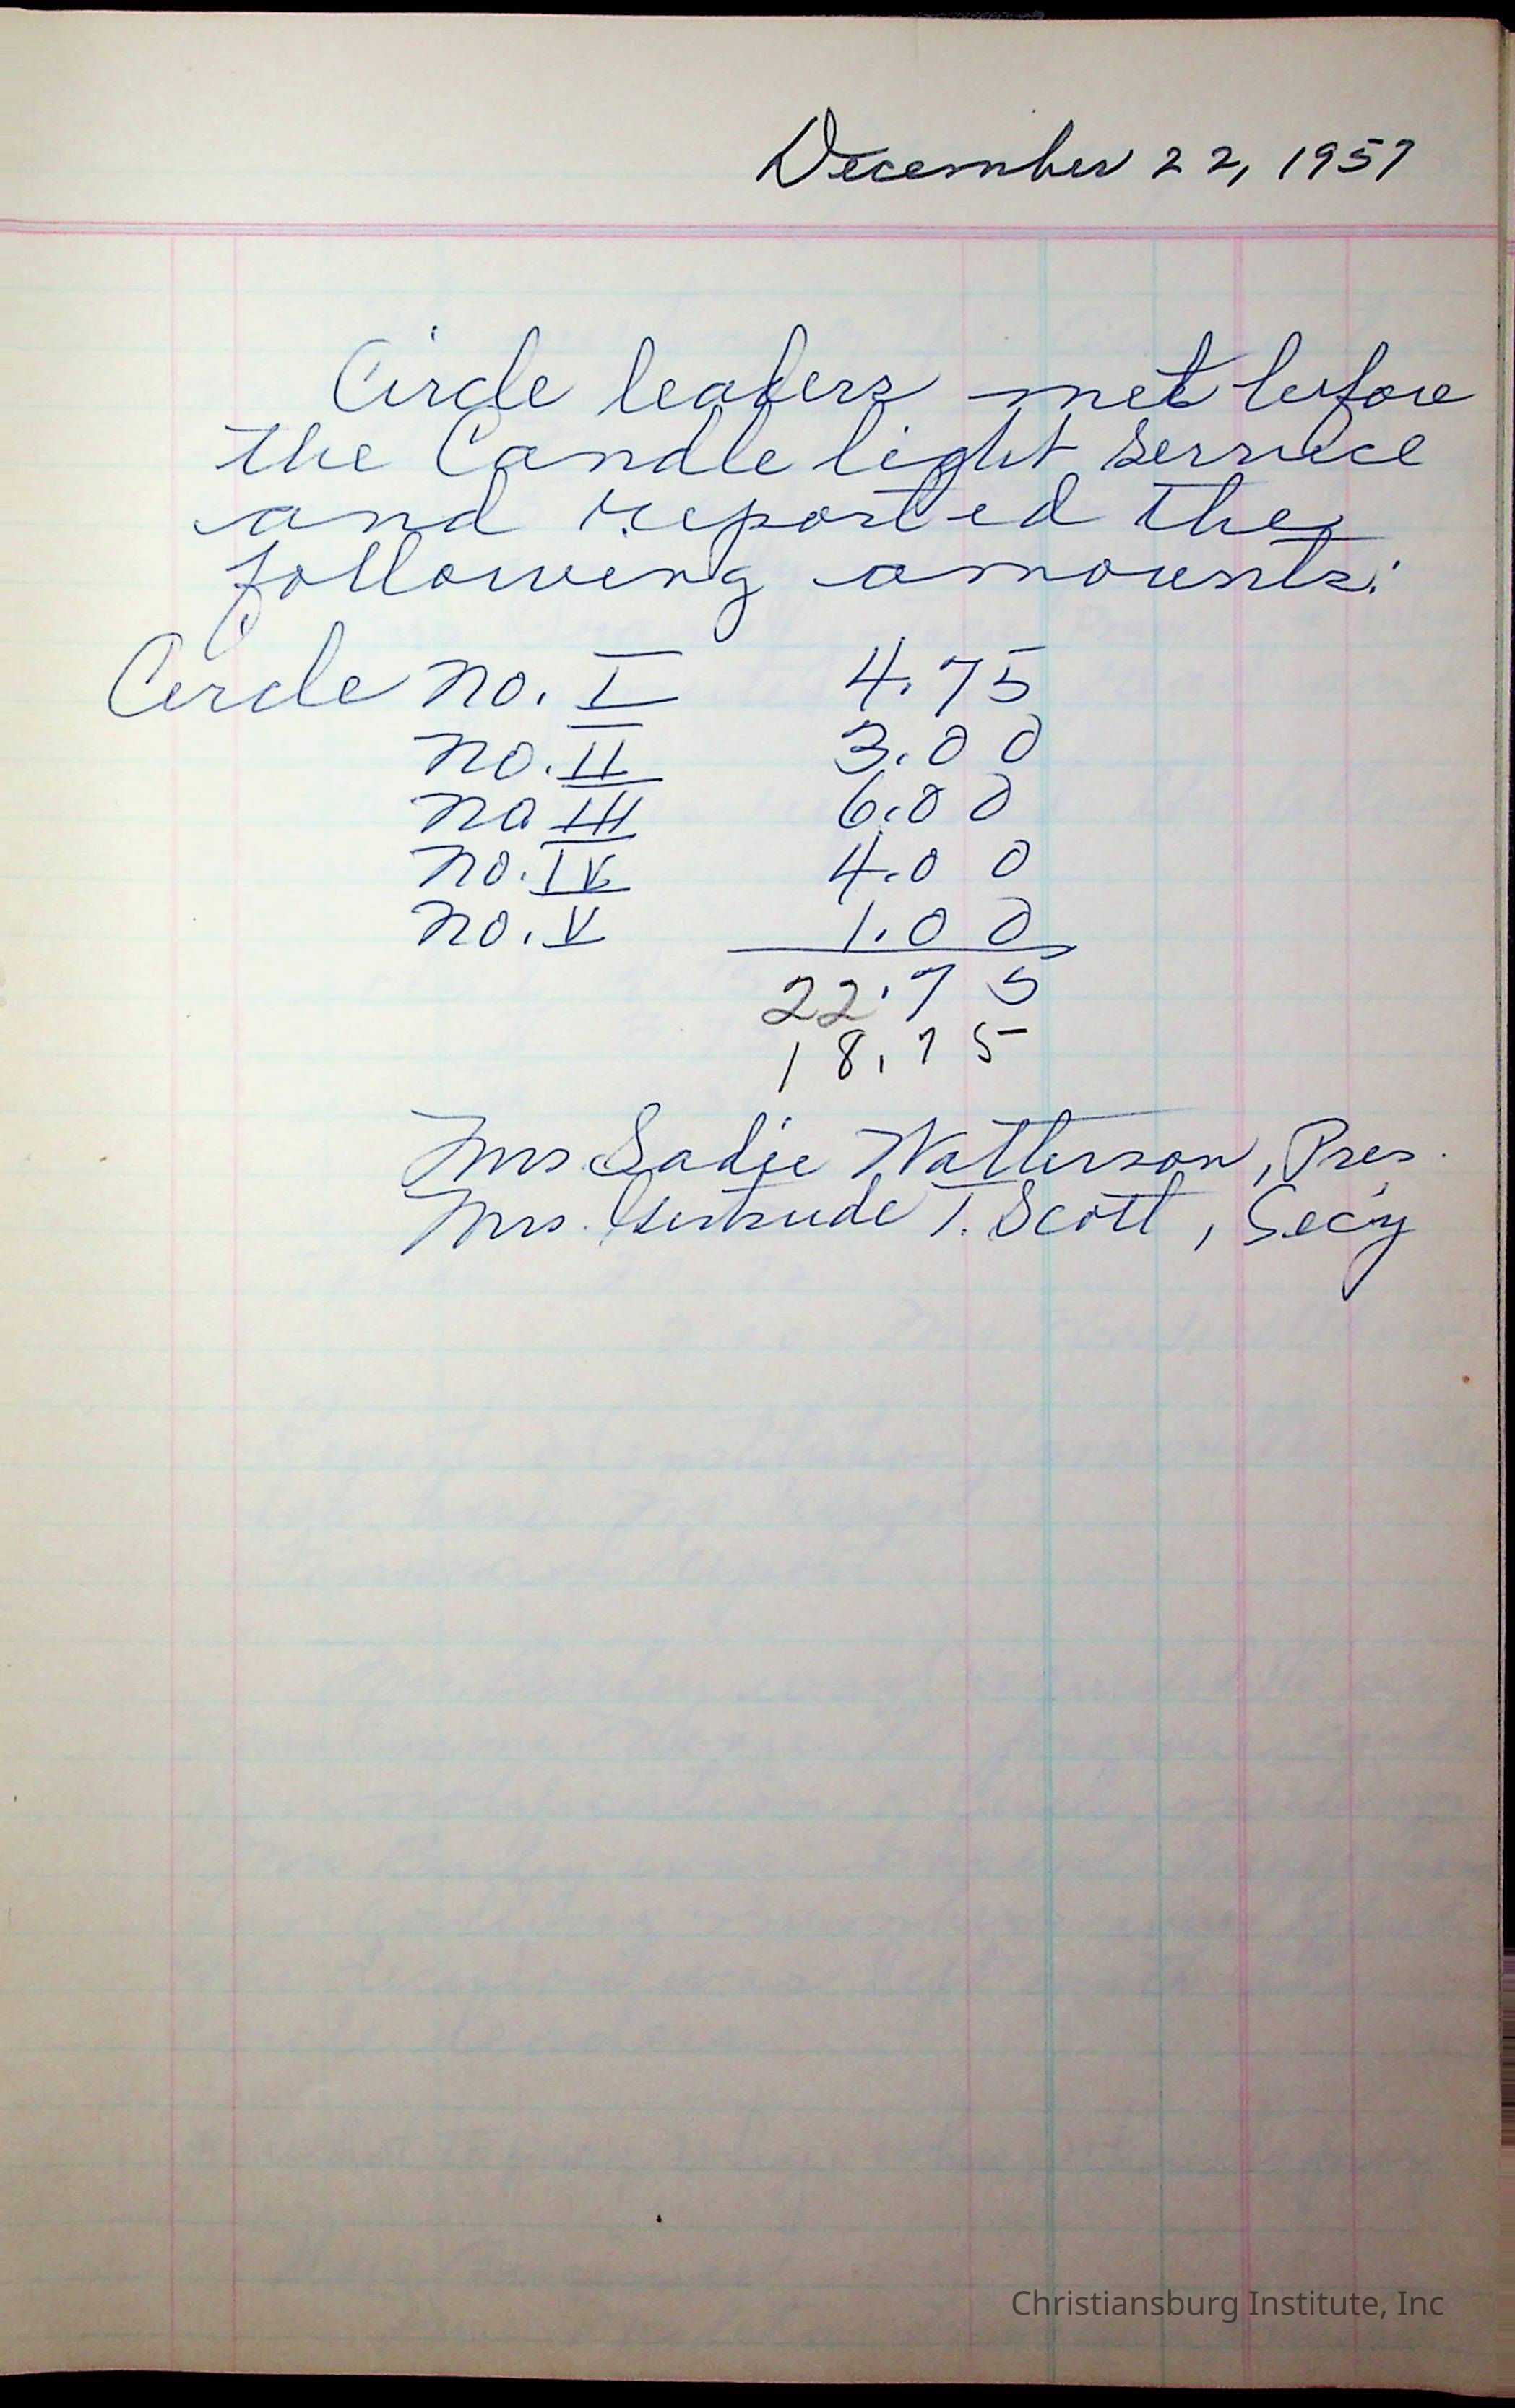 December 22, 1957
Circle leaders met before
the Candle light service
and reported the
following amounts:
Circle no. I 4.75
no. II 3.00
no III 6.00
no. IV 4.00
no. V 1.00
22.75
18.75
Mrs. Sadie Watterson, Pres.
Mrs. Gertrude T. Scott, Sec'y
Christiansburg Institute, Inc